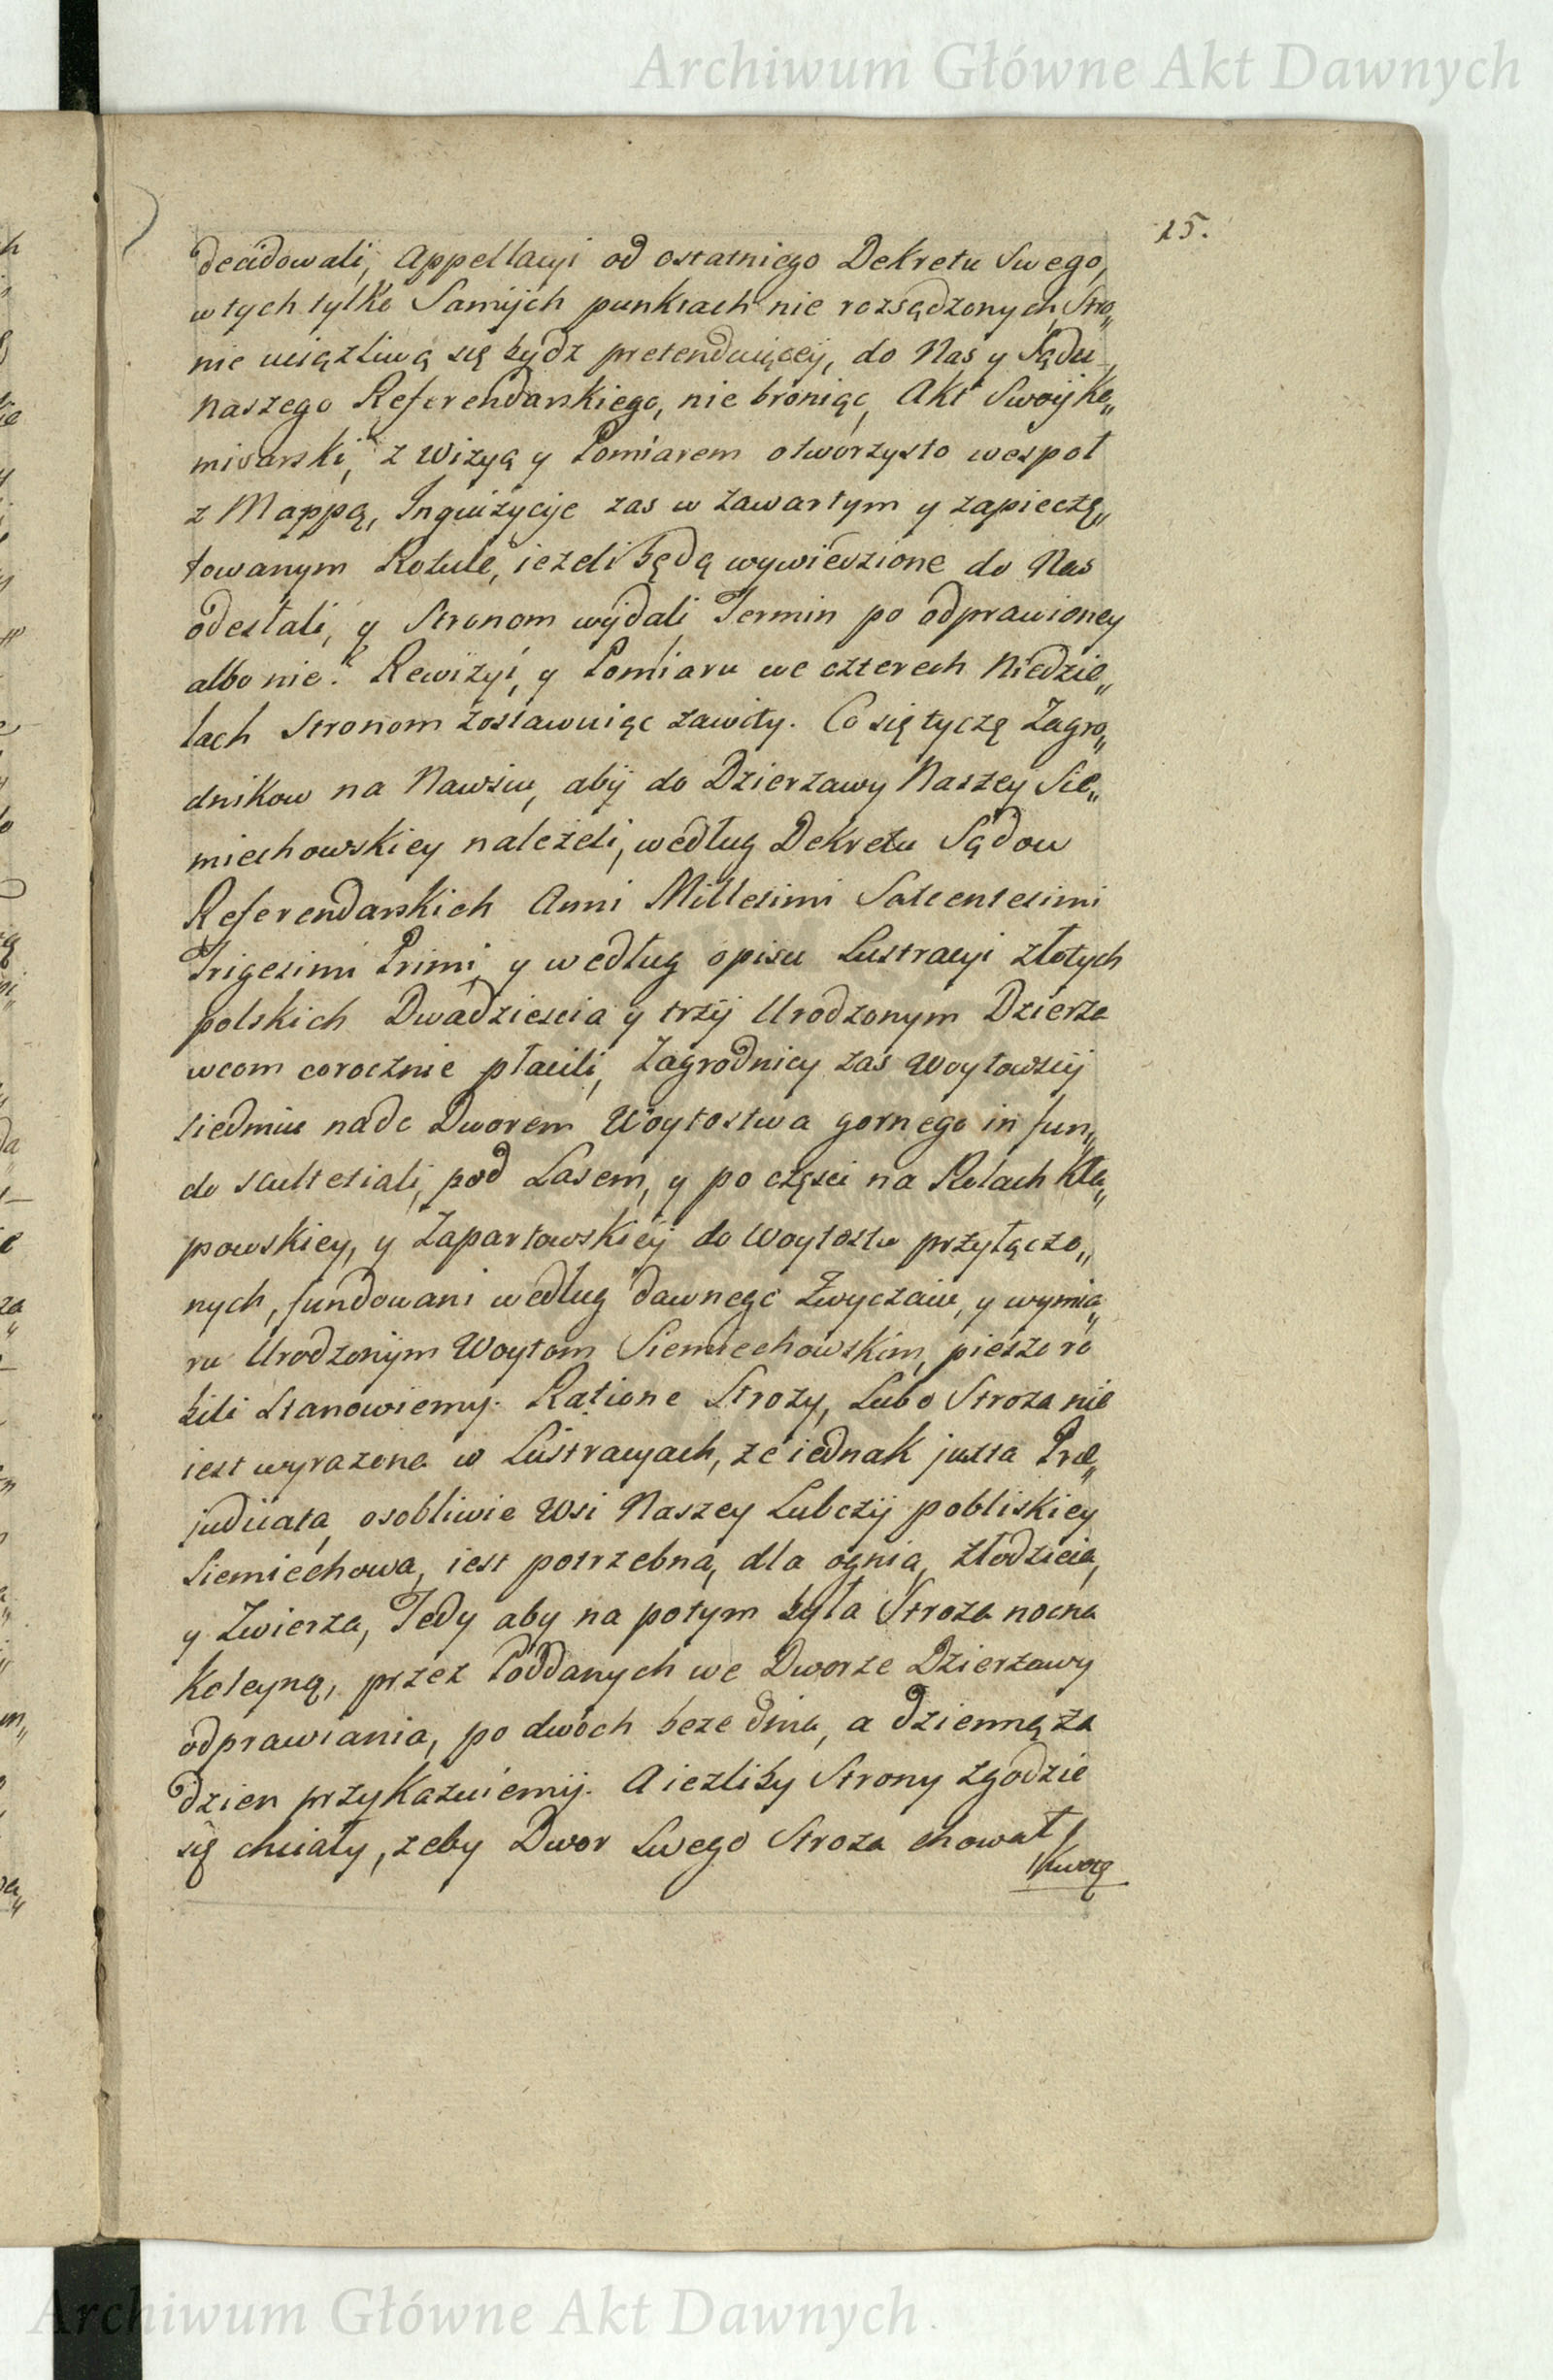 Archiwum Główne Akt Dawnych
15.
decidowali, Appellacyi od ostatniego Dekretu Swego,
w tych tylko Samych punktach nie rozsądzonych, Stro„
nie uciążliwą się bydz pretenduiącey, do Nas y Sądu
Naszego Referendarskiego, nie broniąc, Akt Swoy Ko„
misarski, z Wizyą y Pomiarem otworzysto wespoł
z Mappą, Inquizycye zas w zawartym y zapieczę„
towanym Rotule, iezeli będą wywiedzione do Nas
odesłali, y Stronom wydali, Termin po odprawioney
albo nie. Rewizyi, y Pomiaru we czterech Niedzie„
lach Stronom zostawuiąc zawity. Co się tyczę Zagro„
dnikow na Nawsiu, aby do Dzierzawy Naszey Sie„
miechowskiey nalezeli, według Dekretu Sądow
Referendarskich Anni Millesimi Sexcentesimi
Trigesimi Primi, y według opisu Lustracyi złotych
polskich Dwadziescia y trzy Urodzonym Dzierza
wcom corocznie płacili, Zagrodnicy zas Woytowscy
siedmiu nade Dworem Woytostwa gornego in fun„
do scultetiali, pod Lasem, y po części na Rolach Kła„
powskiey, y Zapartowskiey do Woytostw przyłączo„
nych, fundowani według dawnego Zwyczaiu, y wymia„
ru Urodzonym Woytom Siemiechowskim, pieszo ro
bili Stanowiemy. Ratione Strozy, Lubo Stroza nie
iest wyrazona w Lustracyach, ze iednak juxta Præ„
judicata, osobliwie Wsi Naszey Lubczy pobliskiey
Siemiechowa, iest potrzebna, dla ognia, złodzieia,
y Zwierza, Tedy aby na potym była Stroza nocna
Koleyną, przez Poddanych we Dworze Dzierzawy
odprawiania, po dwoch beze dnia, a dzienną za
dzien przykazuiemy. A iezliby Strony zgodzie
się chciały, zeby Dwor Swego Stroza chował,
Kwotę
Archiwum Główne Akt Dawnych